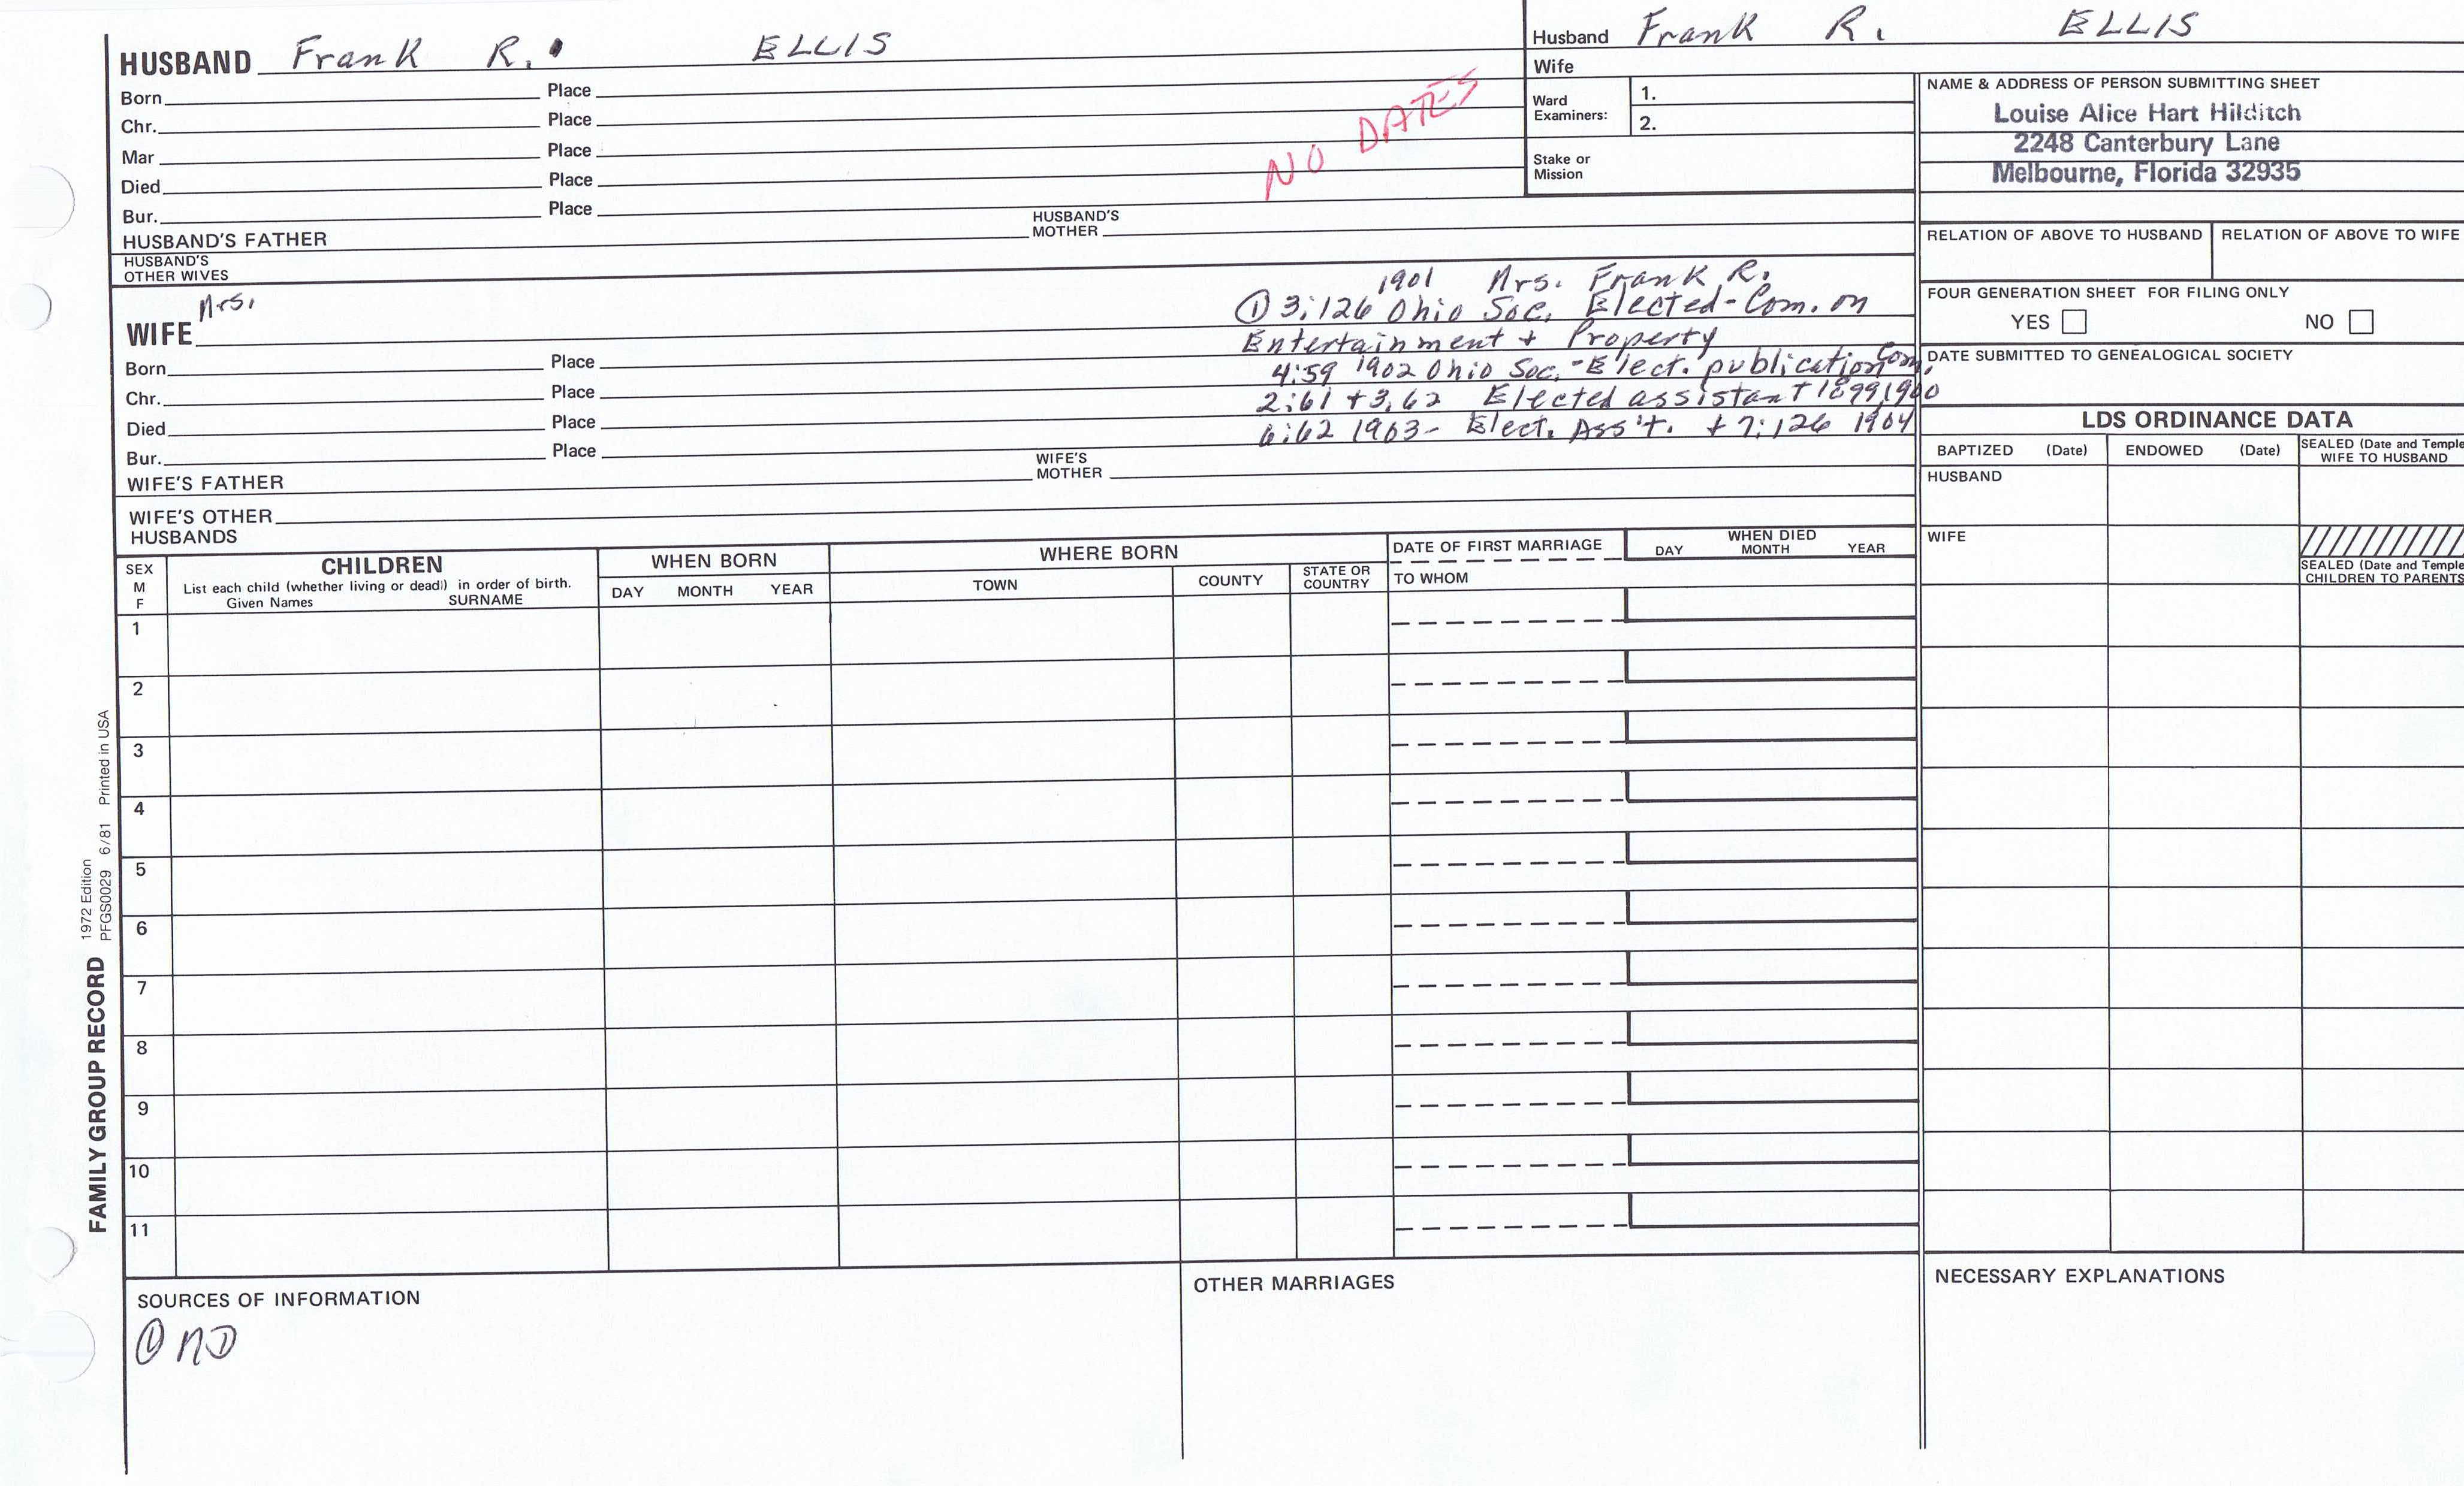 HUSBAND Frank R. ELLIS
Born Place
Chr. Place
Mar Place
Died Place
Bur. Place
HUSBAND'S FATHER HUSBAND'S MOTHER
HUSBAND'S OTHER WIVES
NO DATES
Husband Frank R. ELLIS
Wife
Ward Examiners: 1.
2.
Stake or Mission
NAME & ADDRESS OF PERSON SUBMITTING SHEET
Louise Alice Hart Hilditch
2248 Canterbury Lane
Melbourne, Florida 32935
RELATION OF ABOVE TO HUSBAND RELATION OF ABOVE TO WIFE
FOUR GENERATION SHEET FOR FILING ONLY
YES NO
DATE SUBMITTED TO GENEALOGICAL SOCIETY
WIFE Mrs.
Born Place
Chr. Place
Died Place
Bur. Place
WIFE'S FATHER WIFE'S MOTHER
WIFE'S OTHER HUSBANDS
1901 Mrs. Frank R.
① 3:126 Ohio Soc. Elected-Com. on
Entertainment + Property
4:59 1902 Ohio Soc.-Elect. publication Com.
2:61 + 3,62 Elected assistant 1899,1900
6:62 1903- Elect. Ass't. + 7:126 1904
LDS ORDINANCE DATA
BAPTIZED (Date) ENDOWED (Date) SEALED (Date and Temple
WIFE TO HUSBAND
HUSBAND
WIFE
SEALED (Date and Temple
CHILDREN TO PARENTS
SEX M F
CHILDREN
List each child (whether living or dead) in order of birth.
Given Names SURNAME
WHEN BORN
DAY MONTH YEAR
WHERE BORN
TOWN COUNTY STATE OR COUNTRY
DATE OF FIRST MARRIAGE
TO WHOM
WHEN DIED
DAY MONTH YEAR
1
2
3
4
5
6
7
8
9
10
11
SOURCES OF INFORMATION
① ND
OTHER MARRIAGES
NECESSARY EXPLANATIONS
FAMILY GROUP RECORD
1972 Edition
PFGS0029 6/81 Printed in USA